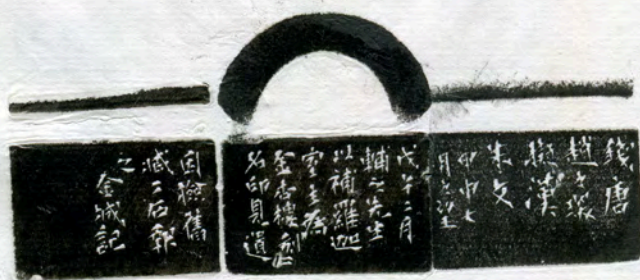 錢唐
趙之琛
擬漢
朱文
甲申七
月之望
戊午二月
輔之先生
以補羅迦
室主為
金香樓
名印見遺
因檢舊
藏二石報
之 金城記